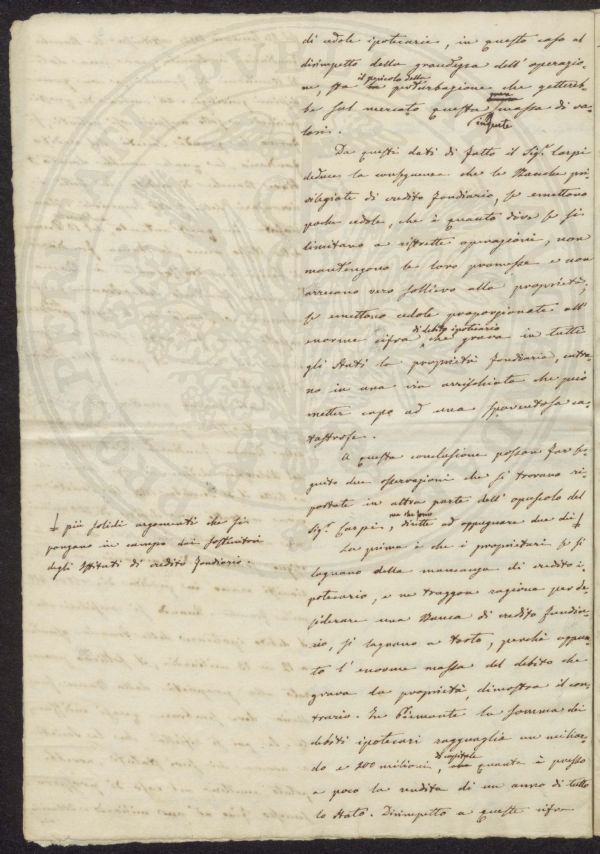 di cedole ipotecarie, in questo caso al
dirimpetto della grandezza dell'operazio-
ne, sta il pericolo della perturbazione che gettereb-
be sul mercato questa ingente massa di va-
lori.
Da questi dati di fatto il Sig.r Carpi
deduce la conseguenza che le Banche pri-
vilegiate di credito fondiario, se emettono
poche cedole, che è quanto dire se si
limitano a ristrette operazioni, non
mantengono le loro promesse e non
arrecano vero sollievo alla proprietà;
se emettono cedole proporzionate all'
enorme cifra di debito ipotecario che grava in tutti
gli Stati la proprietà fondiaria, entra-
no in una via arrischiata che può
metter capo ad una spaventosa ca-
tastrofe.
A questa conclusione posson far se-
guito due osservazioni che si trovano ri-
portate in altra parte dell'opuscolo del
Sig.r Carpi, dirette ad oppugnare due di
più solidi argomenti che si
pongano in campo dai sostenitori
degli Istituti di credito fondiario.
La prima è che i proprietari se si
lagnano della mancanza di credito i-
potecario, e ne traggon ragione per de-
siderare una Banca di credito fondia-
rio, si lagnano a torto, perchè appun-
to l'enorme massa del debito che
grava la proprietà, dimostra il con-
trario. In Piemonte la somma dei
debiti ipotecari ragguaglia un miliar-
do e 200 milioni di capitale, quanta è presso
a poco la rendita di un anno di tutto
lo Stato. Dirimpetto a queste cifre